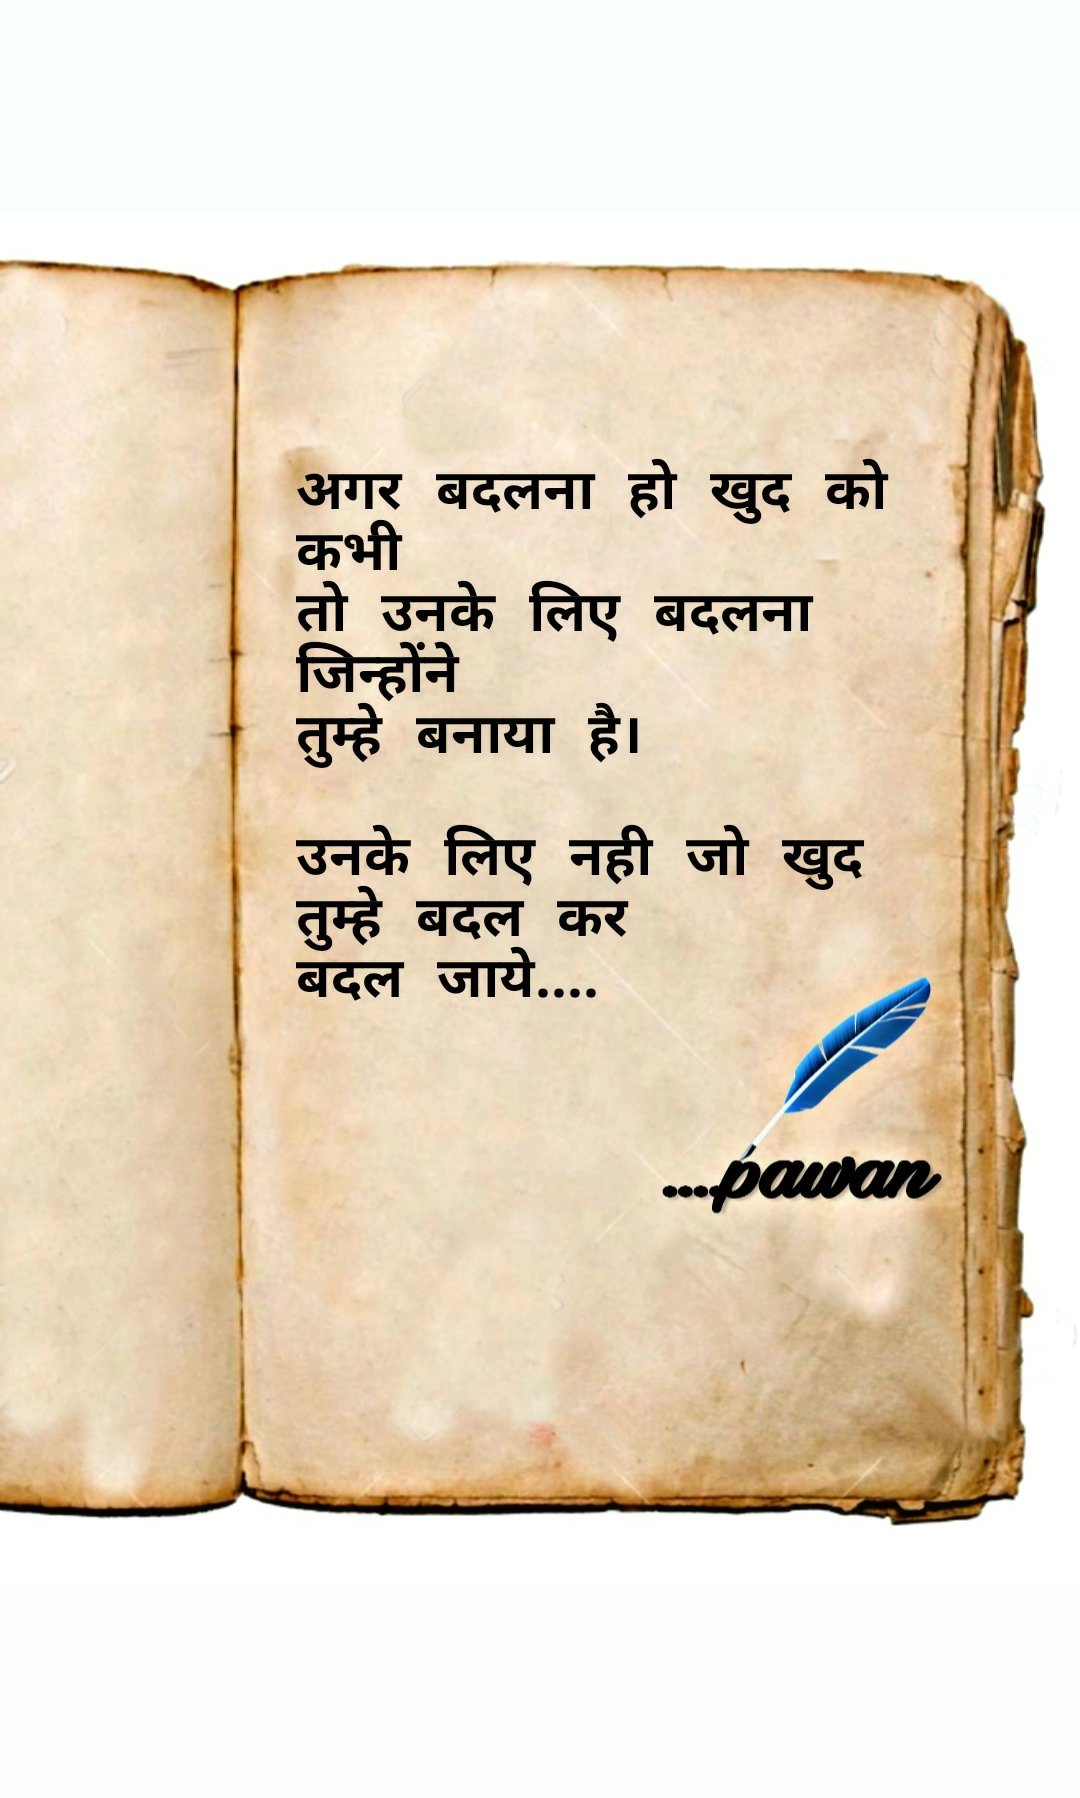 अगर बदलना हो खुद को
कभी
तो उनके लिए बदलना
जिन्होंने
तुम्हे बनाया है।
उनके लिए नही जो खुद
तुम्हे बदल कर
बदल जाये....
....pawan